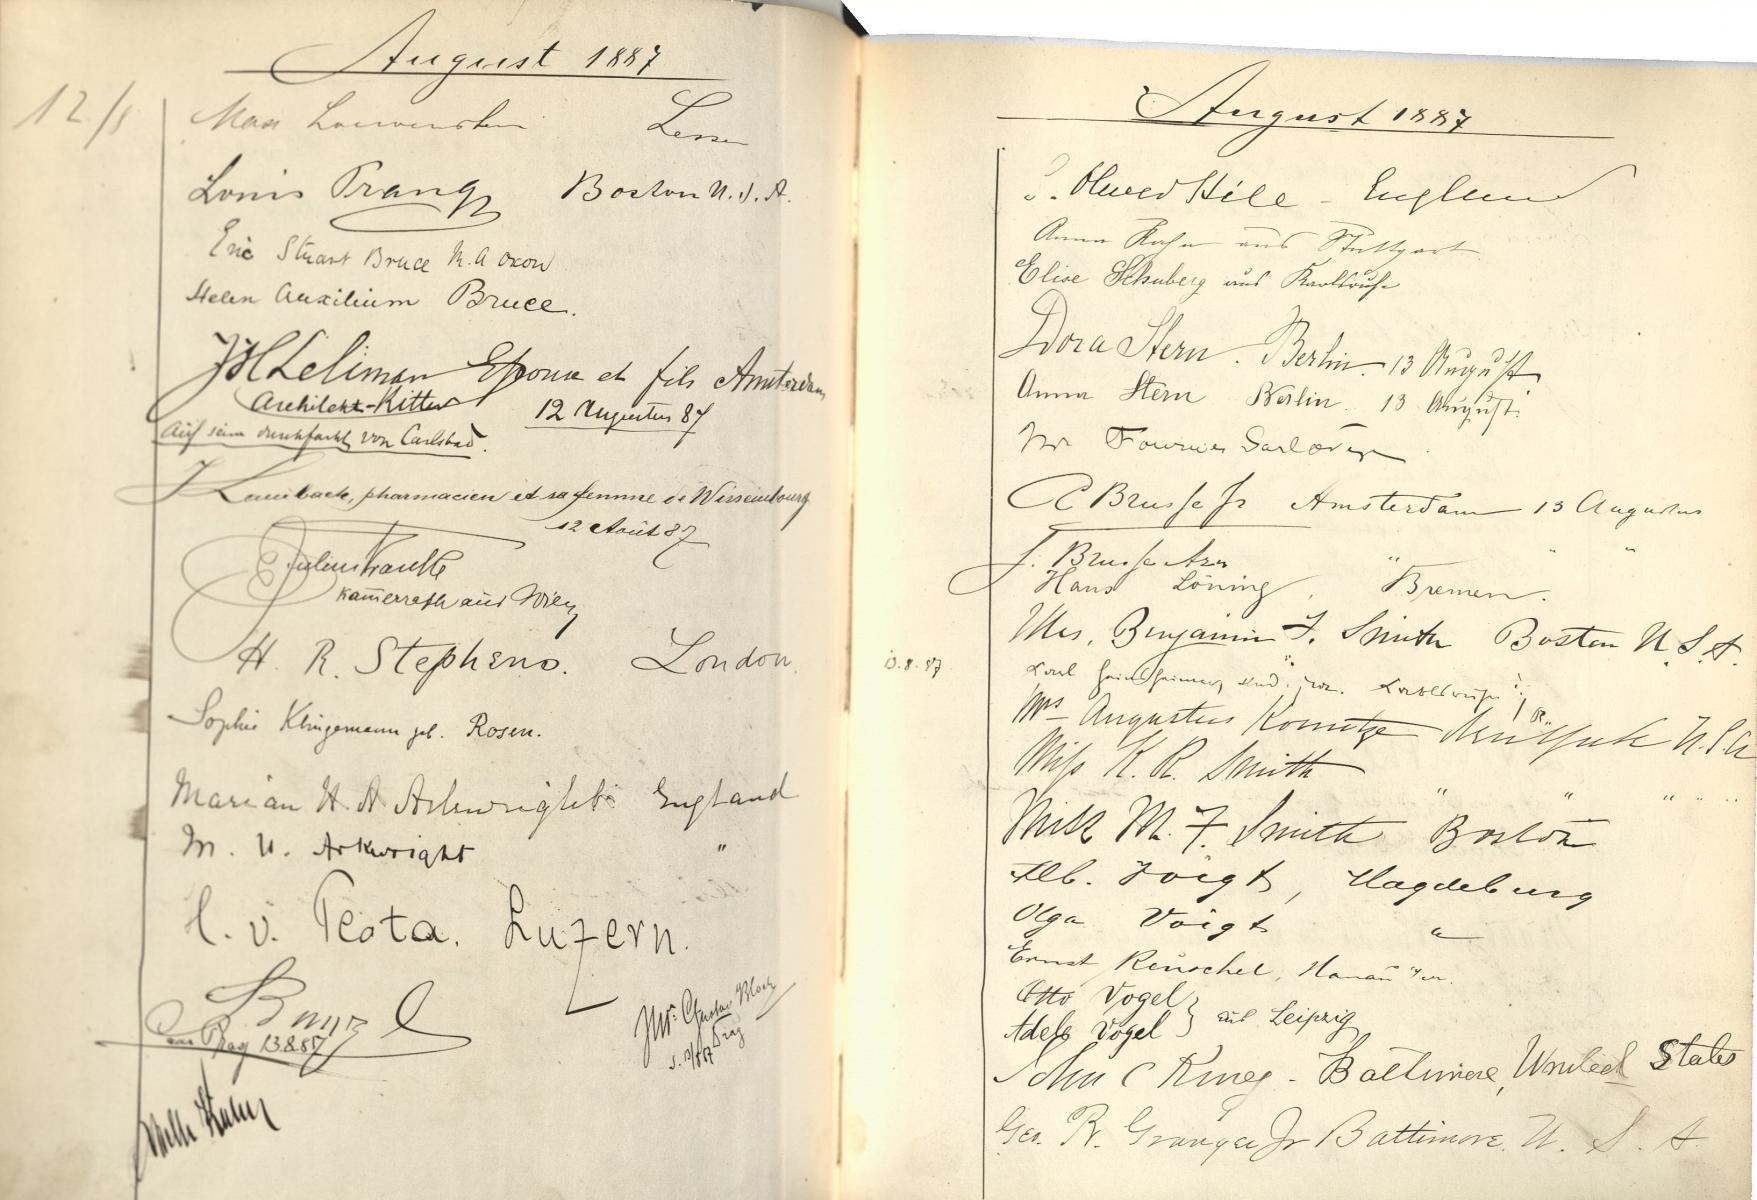 August 1887
12/8
Max Loewenstein
Louis Prang Boston U.S.A.
Eric Stuart Bruce M.A Oxon
Helen Auxilium Bruce.
JH Leliman Epouse et fils Amsterdam
Architekt-Ritter 12 Augustus 87
Auf seine durchfahrt von Carlsbad.
pharmacien et sa femme de Wissembourg
12 Août 87
Julius
aus Wien
H. R. Stephens. London.
Sophie Klingemann geb. Rosen.
Marian H. A Arkwright England
M. U. Arkwright "
H. v. Luzern.
Prag 13.8.87
Gustav Bloch
Prag
August 1887
Hill - England
Anna Hahn aus Stuttgart
Elise Schuberg aus Karlsruhe
Dora Stern. Berlin. 13 August
Anna Stern Berlin. 13 August.
Fournier Sarlovèze
A Brusse Jr Amsterdam 13 Augustus
J. Brusse Azn " " "
Hans Löning, Bremen.
Mrs. Benjamin F. Smith Boston U.S.A.
13.8.87
Karl stud. jur. Karlsruhe
Mrs Augustus U.S.A
Miss K. R. Smith " " " "
Miss M. F. Smith Boston
Alb. Voigt, Magdeburg
Olga Voigt "
Ernst Reuschel, Hanau
Otto Vogel } aus Leipzig
Adele Vogel
John C King - Baltimore, United States
Geo. R. Granger Jr Baltimore. U. S. A.